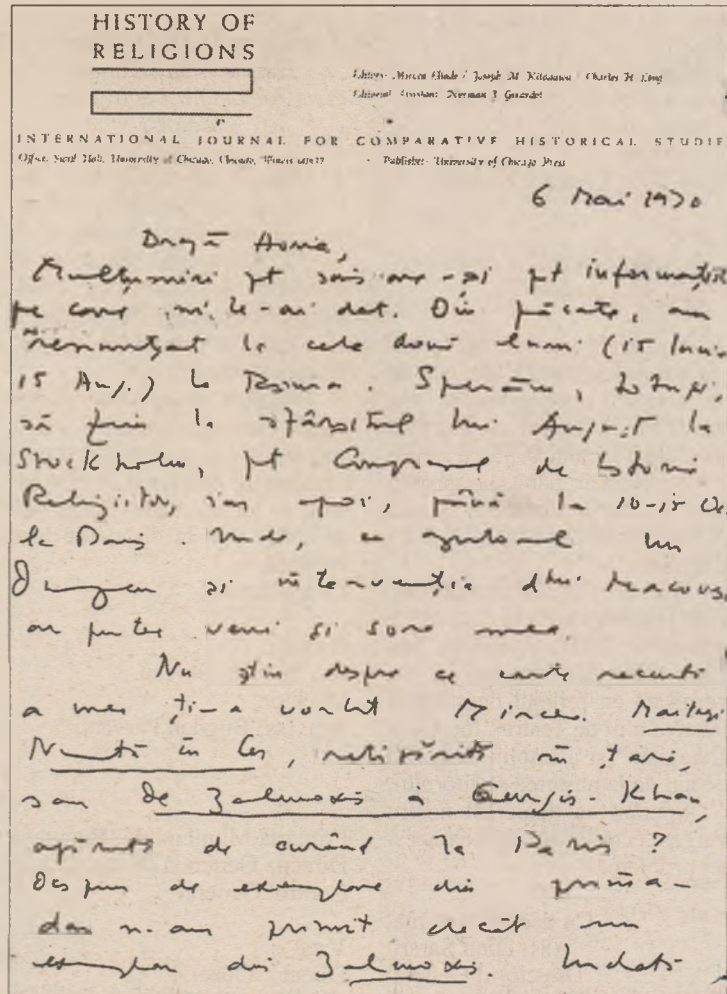 HISTORY OF
RELIGIONS
Editors: Mircea Eliade / Joseph M. Kitagawa / Charles H. Long
Editorial Assistant: Norman J. Girardot
INTERNATIONAL JOURNAL FOR COMPARATIVE HISTORICAL STUDIE
Office: Swift Hall, University of Chicago, Chicago, Illinois 60637 · Publisher: University of Chicago Press
6 Mai 1970
Dragă Horia,
Mulțumiri pt scrisoare și pt informațiile
pe care mi le-ai dat. Din păcate, am
renunțat la cele două luni (15 Iunie
15 Aug.) la Roma. Sperăm, totuși,
să fim la sfârșitul lui August la
Stockholm, pt Congresul de Istoria
Religiilor, iar apoi, până la 10-15 Oc
la Paris. Unde, cu ajutorul lui
și intervenția dlui
ar putea veni și sora mea.
Nu știu despre ce carte recentă
a mea ți-a vorbit Mircea. Maitreyi
Nuntă în Cer, retipărită în țară,
sau De Zalmoxis à Gengis-Khan,
apărută de curând la Paris?
Dispun de exemplare din prima-
dar n-am primit decât un
exemplar din Zalmoxis. Îndată